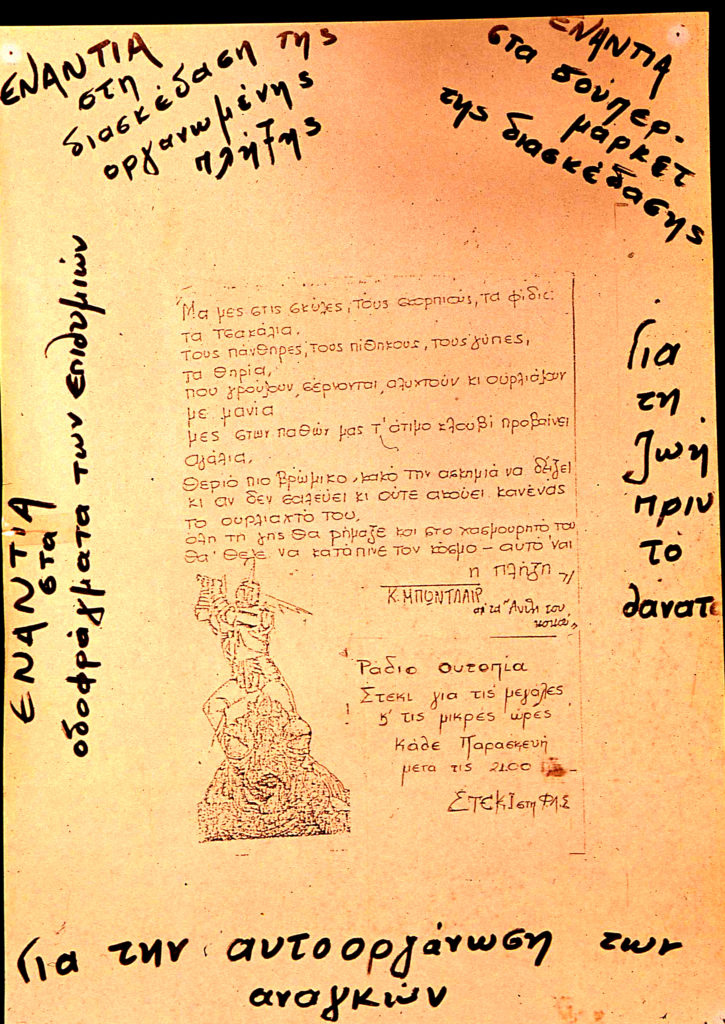 ΕΝΑΝΤΙΑ
στη
διασκέδαση της
οργανωμένης
πλήξης
ΕΝΑΝΤΙΑ
στα σούπερ-
μάρκετ
της διασκέδασης
ΕΝΑΝΤΙΑ
στα
οδοφράγματα των επιθυμιών
Μα μες στις σκύλες, τους σκορπιούς, τα φίδια:
τα τσακάλια,
τους πάνθηρες, τους πίθηκους, τους γύπες,
τα θηρία,
που γρούζουν, σέρνονται, αλυχτούν κι ουρλιάζουν
με μανία
μες στων παθών μας τ' άτιμο κλουβί προβαίνει
αγάλια,
Θεριό πιο βρώμικο, κακό την ασκημιά να δείξει
κι αν δεν σαλεύει κι ούτε ακούει κανένας
το ουρλιαχτό του,
όλη τη γης θα ρήμαζε και στο χασμουρητό του
θα 'θελε να κατάπινε τον κόσμο – αυτό 'ναι
η πλήξη
Κ. ΜΠΩΝΤΛΑΙΡ
"Άνθη του
κακού"
Ράδιο Ουτοπία
Στέκι για τις μεγάλες
κ' τις μικρές ώρες
!
κάθε Παρασκευή
μετα τις 21.00
ΣΤΕΚΙ στη ΦΛΣ
Για
τη
ζωή
πριν
το
θάνατο
Για την αυτοοργάνωση των
αναγκιών